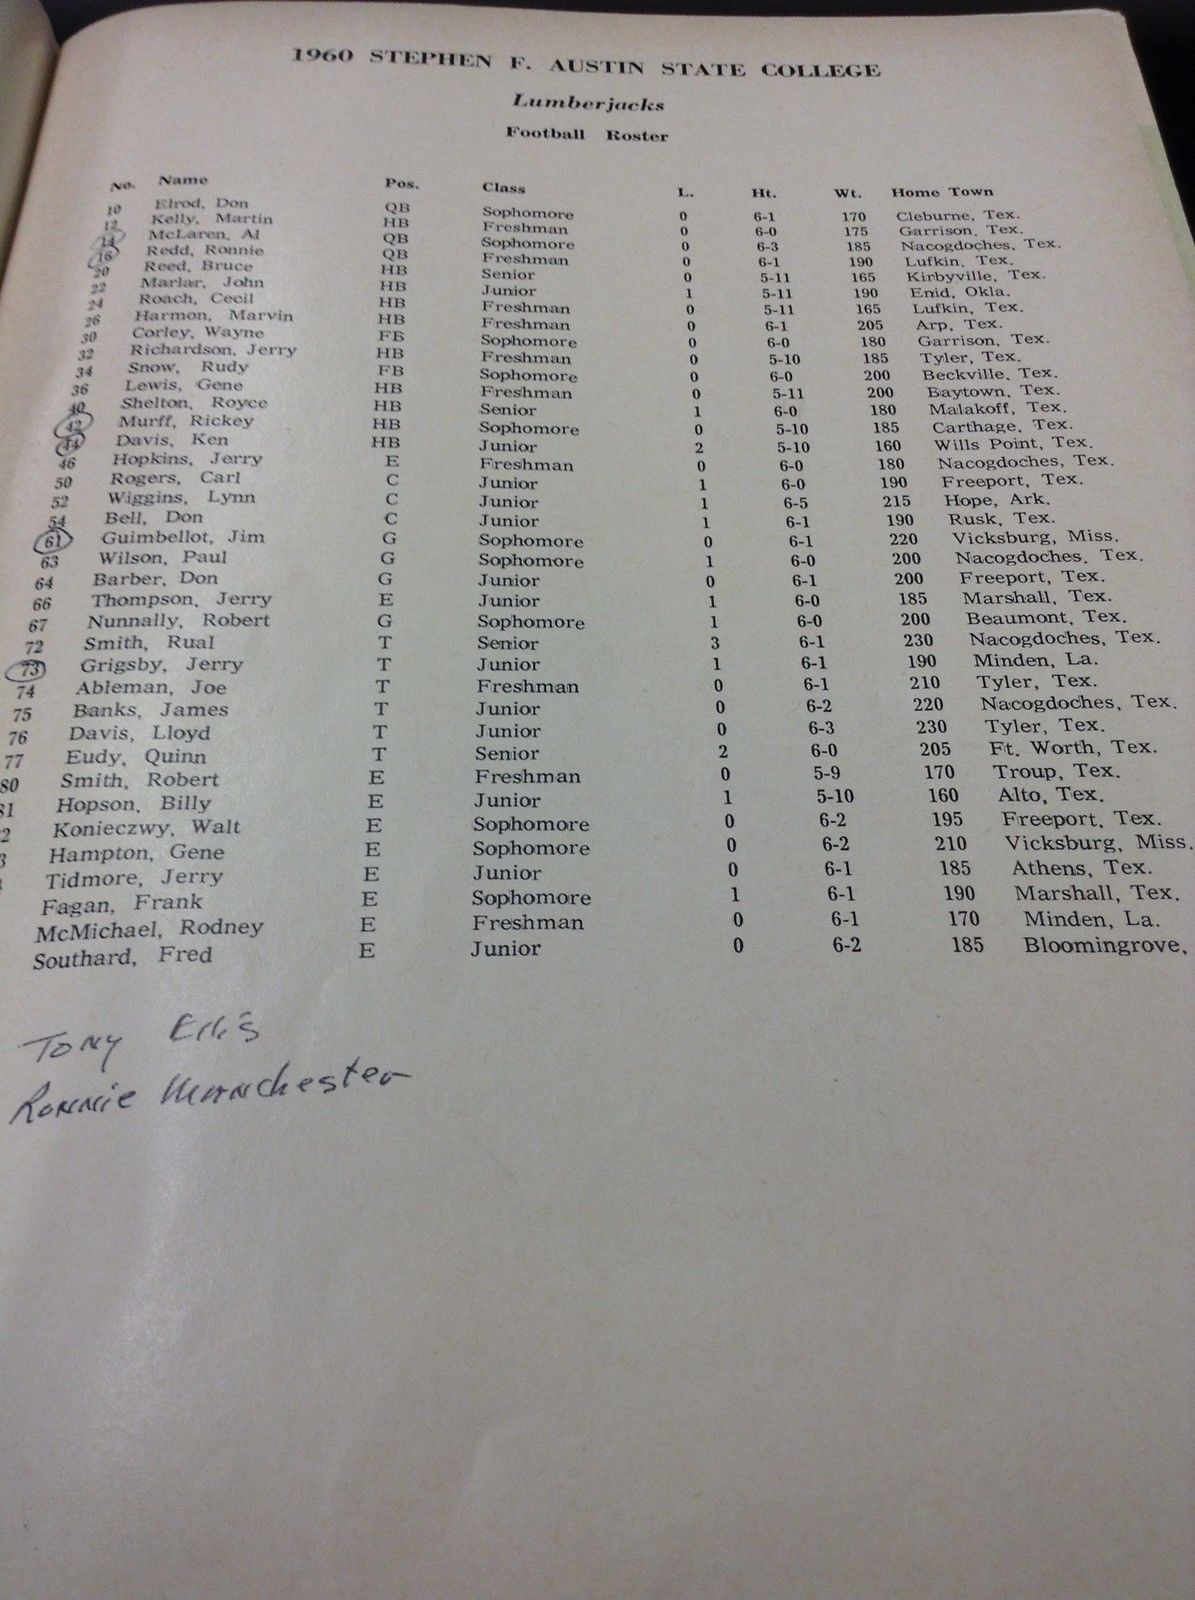 1960 STEPHEN F. AUSTIN STATE COLLEGE
Lumberjacks
Football Roster
No. Name Pos. Class L. Ht. Wt. Home Town
10 Elrod, Don QB Sophomore 0 6-1 170 Cleburne, Tex.
12 Kelly, Martin HB Freshman 0 6-0 175 Garrison, Tex.
14 McLaren, Al QB Sophomore 0 6-3 185 Nacogdoches, Tex.
16 Redd, Ronnie QB Freshman 0 6-1 190 Lufkin, Tex.
20 Reed, Bruce HB Senior 0 5-11 165 Kirbyville, Tex.
22 Marlar, John HB Junior 1 5-11 190 Enid, Okla.
24 Roach, Cecil HB Freshman 0 5-11 165 Lufkin, Tex.
26 Harmon, Marvin HB Freshman 0 6-1 205 Arp, Tex.
30 Corley, Wayne FB Sophomore 0 6-0 180 Garrison, Tex.
32 Richardson, Jerry HB Freshman 0 5-10 185 Tyler, Tex.
34 Snow, Rudy FB Sophomore 0 6-0 200 Beckville, Tex.
36 Lewis, Gene HB Freshman 0 5-11 200 Baytown, Tex.
40 Shelton, Royce HB Senior 1 6-0 180 Malakoff, Tex.
42 Murff, Rickey HB Sophomore 0 5-10 185 Carthage, Tex.
44 Davis, Ken HB Junior 2 5-10 160 Wills Point, Tex.
46 Hopkins, Jerry E Freshman 0 6-0 180 Nacogdoches, Tex.
50 Rogers, Carl C Junior 1 6-0 190 Freeport, Tex.
52 Wiggins, Lynn C Junior 1 6-5 215 Hope, Ark.
54 Bell, Don C Junior 1 6-1 190 Rusk, Tex.
61 Guimbellot, Jim G Sophomore 0 6-1 220 Vicksburg, Miss.
63 Wilson, Paul G Sophomore 1 6-0 200 Nacogdoches, Tex.
64 Barber, Don G Junior 0 6-1 200 Freeport, Tex.
66 Thompson, Jerry E Junior 1 6-0 185 Marshall, Tex.
67 Nunnally, Robert G Sophomore 1 6-0 200 Beaumont, Tex.
72 Smith, Rual T Senior 3 6-1 230 Nacogdoches, Tex.
73 Grigsby, Jerry T Junior 1 6-1 190 Minden, La.
74 Ableman, Joe T Freshman 0 6-1 210 Tyler, Tex.
75 Banks, James T Junior 0 6-2 220 Nacogdoches, Tex.
76 Davis, Lloyd T Junior 0 6-3 230 Tyler, Tex.
77 Eudy, Quinn T Senior 2 6-0 205 Ft. Worth, Tex.
80 Smith, Robert E Freshman 0 5-9 170 Troup, Tex.
81 Hopson, Billy E Junior 1 5-10 160 Alto, Tex.
2 Konieczwy, Walt E Sophomore 0 6-2 195 Freeport, Tex.
3 Hampton, Gene E Sophomore 0 6-2 210 Vicksburg, Miss.
Tidmore, Jerry E Junior 0 6-1 185 Athens, Tex.
Fagan, Frank E Sophomore 1 6-1 190 Marshall, Tex.
McMichael, Rodney E Freshman 0 6-1 170 Minden, La.
Southard, Fred E Junior 0 6-2 185 Bloomingrove,
Tony Ellis
Ronnie Manchester